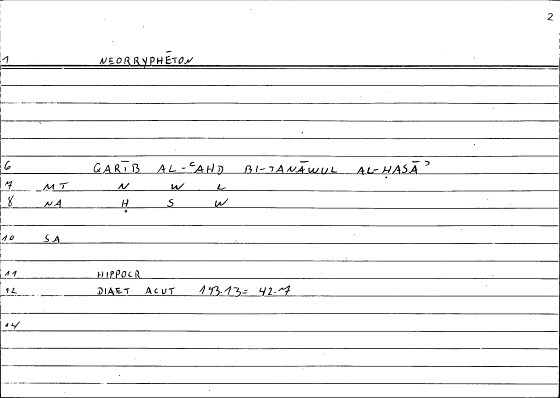 2
1 NEORRYPHĒTON
6 QARĪB AL-ʿAHD BI-TANĀWUL AL-ḤASĀʾ
7 MT N W L
8 NA Ḥ S W
10 SA
11 HIPPOCR
12 DIAET ACUT 143.13= 42.7
14